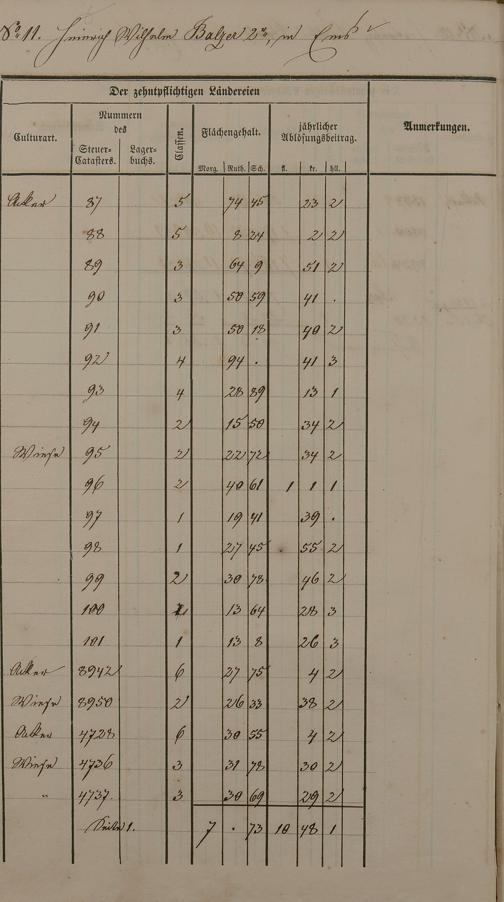 No. 11. Heinrich Wilhelm Balzer 2r, in Ems
Der zehntpflichtigen Ländereien
Culturart. Nummern des Classen. Flächengehalt. jährlicher Ablösungsbeitrag. Anmerkungen.
Steuer-Catasters. Lager-buchs. Morg. Ruth. Sch. fl. kr. hll.
Acker 87 5 74 45 23 2
88 5 8 24 2 2
89 3 64 9 51 2
90 3 50 59 41 .
91 3 50 18 40 2
92 4 94 . 41 3
93 4 28 89 13 1
94 2 15 50 34 2
Wiese 95 2 22 72 34 2
96 2 40 61 1 1 1
97 1 19 41 39 .
98 1 27 45 55 2
99 2 30 78 46 2
100 1 13 64 28 3
101 1 13 8 26 3
Acker 8942 6 27 75 4 2
Wiese 8950 2 26 33 38 2
Acker 4728 6 30 55 4 2
Wiese 4736 3 31 78 30 2
" 4737. 3 30 69 29 2
Seite 1. 7 . 73 10 48 1